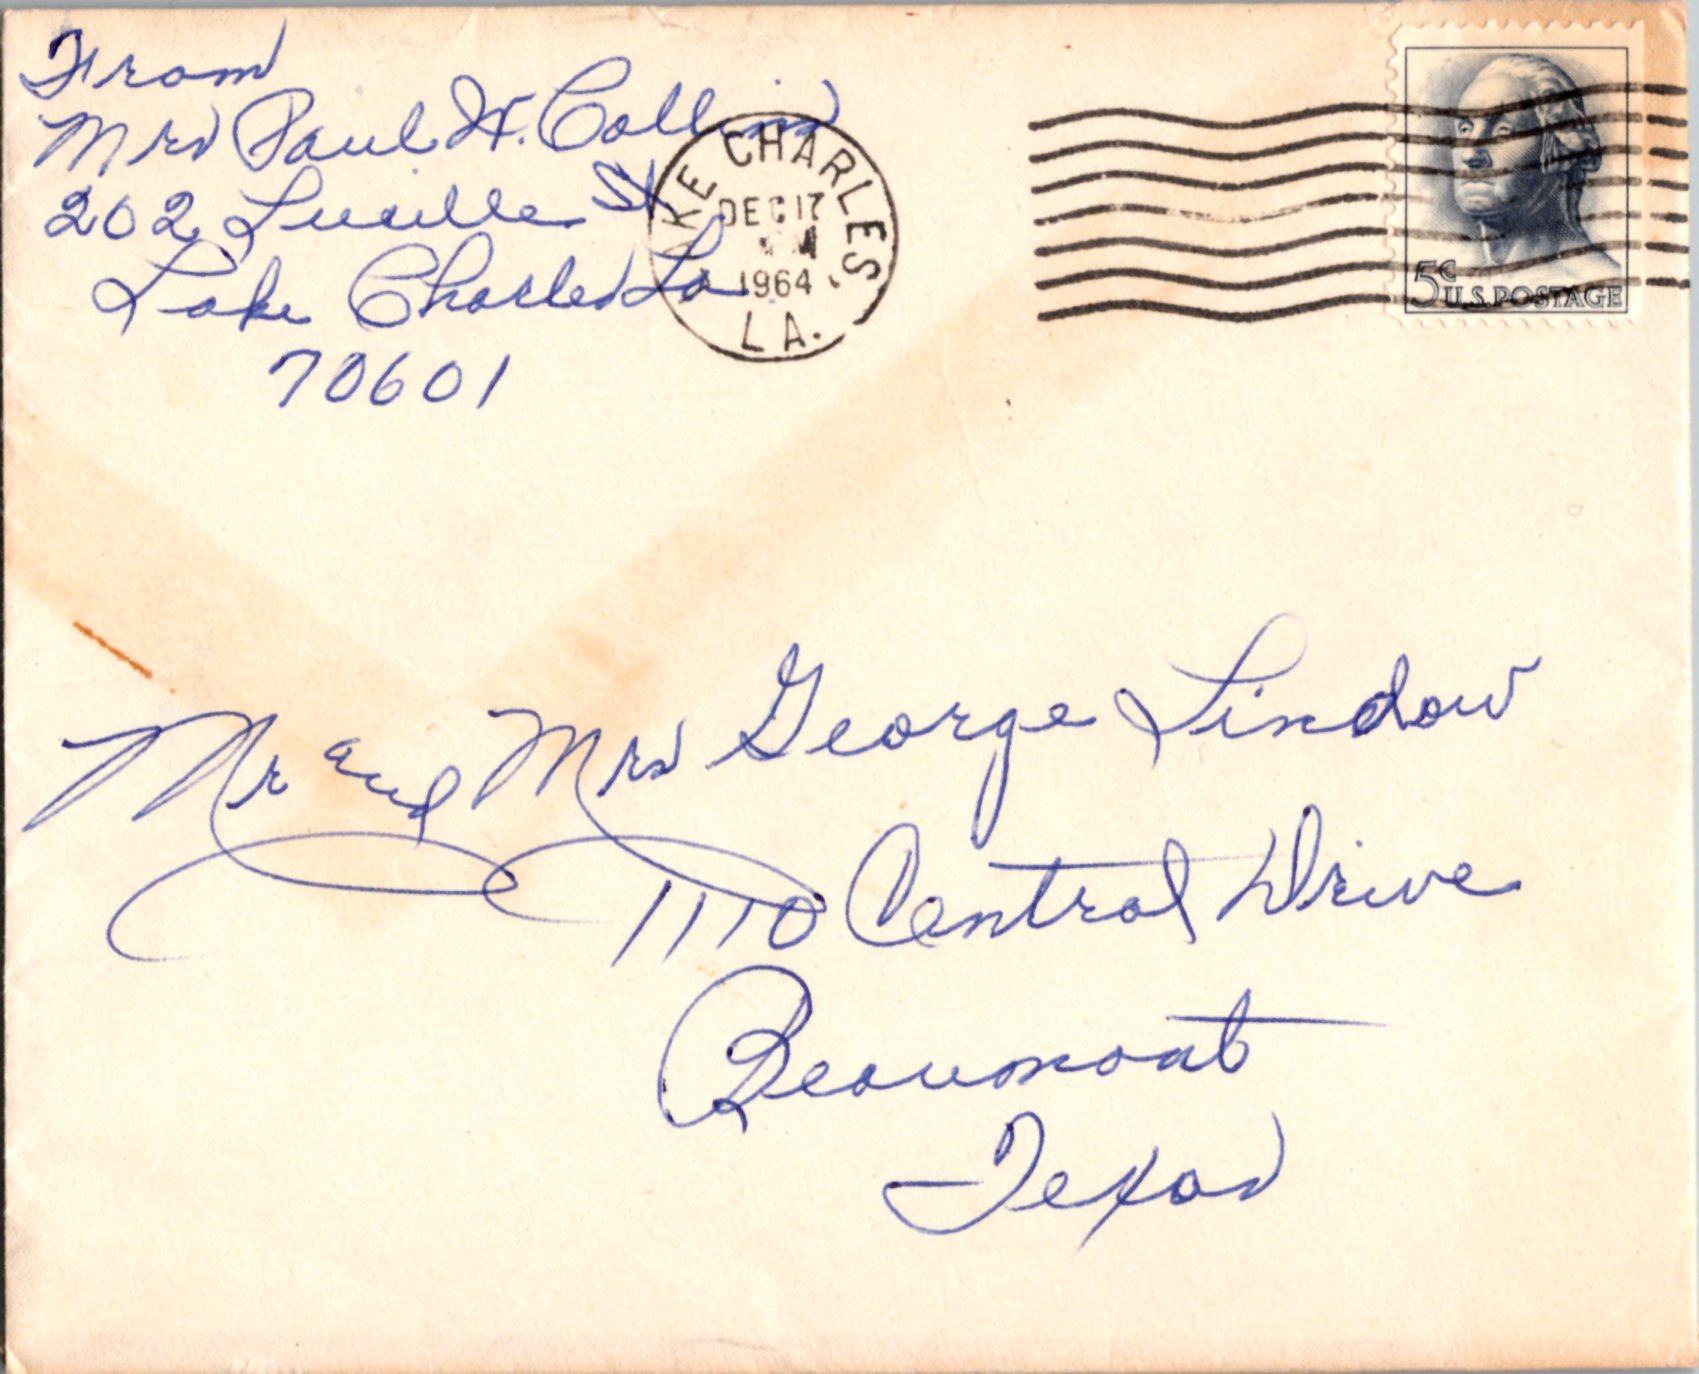 From
Mrs Paul H. Collins
202 Lucille St
Lake Charles La
70601
LAKE CHARLES, LA.
DEC 17
1964
5¢ U.S. POSTAGE
Mr and Mrs George Lindow
1110 Central Drive
Beaumont
Texas